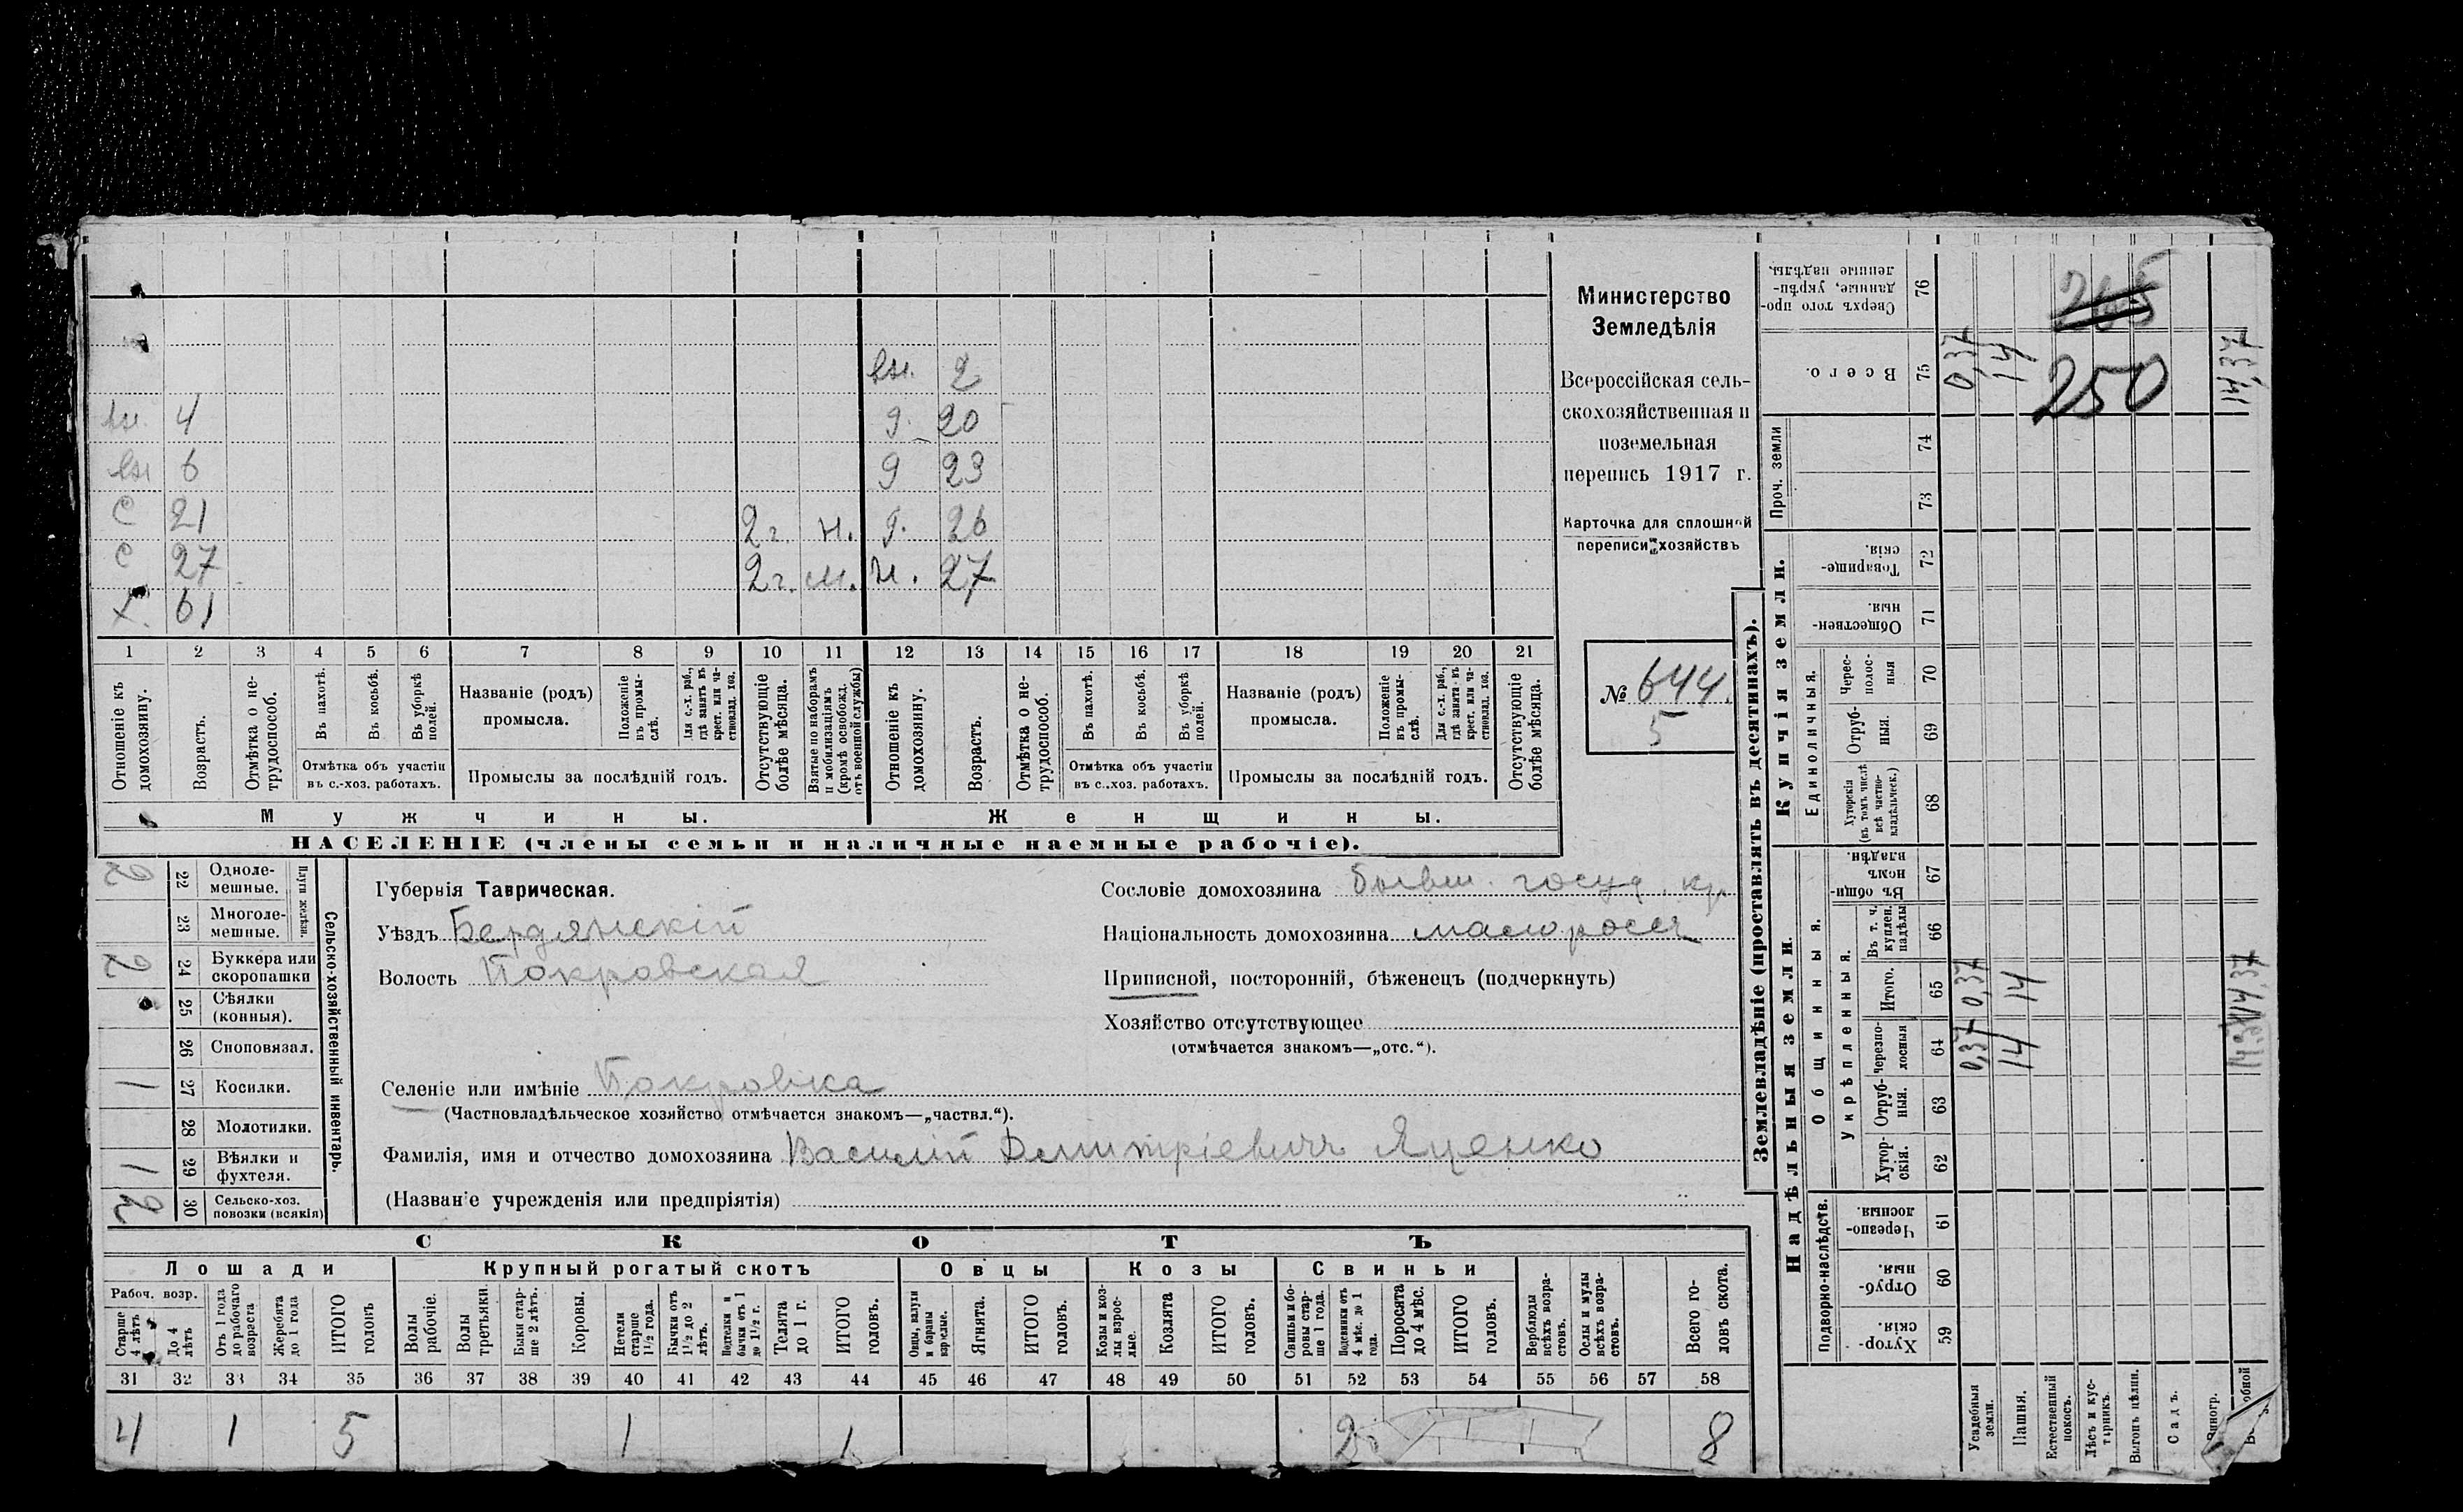 вн. 2
вн. 4 д. 20
вн 6 д 23
С 21 2 г. н. д. 26
С 27 2 г. м. н. 27
х. 61
1 2 3 4 5 6 7 8 9 10 11 12 13 14 15 16 17 18 19 20 21
Отношеніе къ домохозяину.
Возрастъ.
Отмѣтка о не-трудоспособ.
Въ пахотѣ.
Въ косьбѣ.
Въ уборкѣ полей.
Отмѣтка объ участіи въ с.-хоз. работахъ.
Названіе (родъ) промысла.
Положеніе въ промы-слѣ.
Для с.-х. раб., гдѣ занятъ въ крест. или ча-стновлад. хоз.
Промыслы за послѣдній годъ.
Отсутствующіе болѣе мѣсяца.
Взятые по наборамъ и мобилизаціямъ (кромѣ освобожд. отъ военной службы)
Отношеніе къ домохозяину.
Возрастъ.
Отмѣтка о не-трудоспособ.
Въ пахотѣ.
Въ косьбѣ.
Въ уборкѣ полей.
Отмѣтка объ участіи въ с.-хоз. работахъ.
Названіе (родъ) промысла.
Положеніе въ промы-слѣ.
Для с.-х. раб., гдѣ занята въ крест. или ча-стновлад. хоз.
Промыслы за послѣдній годъ.
Отсутствующіе болѣе мѣсяца.
Мужчины.
Женщины.
НАСЕЛЕНІЕ (члены семьи и наличные наемные рабочіе).
Министерство
Земледѣлія
Всероссійская сель-
скохозяйственная и
поземельная
перепись 1917 г.
Карточка для сплошной
переписи хозяйствъ
№ 644.
5
2 22 Одноле-мешные.
23 Многоле-мешные.
Плуги желѣзн.
2 24 Буккера или скоропашки
25 Сѣялки (конныя).
26 Сноповязал.
1 27 Косилки.
28 Молотилки.
1 29 Вѣялки и фухтеля.
2 30 Сельско-хоз. повозки (всякія)
Сельско-хозяйственный инвентарь.
Губернія Таврическая.
Уѣздъ Бердянскій
Волость Покровская
Сословіе домохозяина бывш. госуд. кр.
Національность домохозяина малоросс
Приписной, посторонній, бѣженецъ (подчеркнуть)
Хозяйство отсутствующее
(отмѣчается знакомъ—„отс.“).
Селеніе или имѣніе Покровка
(Частновладѣльческое хозяйство отмѣчается знакомъ—„частвл.“).
Фамилія, имя и отчество домохозяина Василій Дмитріевичъ Яценко
(Названіе учрежденія или предпріятія)
СКОТЪ
Лошади
Крупный рогатый скотъ
Овцы
Козы
Свиньи
Рабоч. возр.
Старше 4 лѣтъ
До 4 лѣтъ
Отъ 1 года до рабочаго возраста
Жеребята до 1 года
ИТОГО головъ
Волы рабочіе.
Волы третьяки.
Быки стар-ше 2 лѣтъ.
Коровы.
Нетели старше 1½ года.
Бычки отъ 1½ до 2 лѣтъ.
Подтелки и бычки отъ 1 до 1½ г.
Телята до 1 г.
ИТОГО головъ.
Овцы, валухи и бараны взрослые.
Ягнята.
ИТОГО головъ.
Козы и коз-лы взрос-лые.
Козлята
ИТОГО головъ.
Свиньи и бо-ровы стар-ше 1 года.
Подсвинки отъ 4 мѣс. до 1 года.
Поросята до 4 мѣс.
ИТОГО головъ.
Верблюды всѣхъ возра-стовъ.
Ослы и мулы всѣхъ возра-стовъ.
Всего го-ловъ скота.
31 32 33 34 35 36 37 38 39 40 41 42 43 44 45 46 47 48 49 50 51 52 53 54 55 56 57 58
4 1 5 1 1 2 8
Землевладѣніе (проставлять въ десятинахъ).
Купчія земли.
Надѣльныя земли.
Сверхъ того про-данные, укрѣп-ленные надѣлы. 76
Всего. 75
Проч. земли 74 73
Товарище-скія. 72
Обществен-ныя. 71
Единоличныя.
Черес-полос-ныя 70
Отруб-ныя. 69
Хуторскія (въ томъ числѣ всѣ частно-владѣльческ.) 68
Общинныя.
Въ общи-нномъ владѣн. 67
Укрѣпленныя.
Въ т. ч. куплен. надѣлы 66
Итого. 65
Черезпо-лосныя 64
Отруб-ныя. 63
Хутор-скія. 62
Подворно-наслѣдств.
Черезпо-лосныя. 61
Отруб-ныя. 60
Хутор-скія. 59
Усадебныя земли.
Пашня.
Естественный покосъ.
Лѣсъ и кус-тарникъ.
Выгонъ цѣлин.
Садъ.
Виногр.
265
250
0,37
14
14,37
0,37 0,37
14 14
14,37 14,37